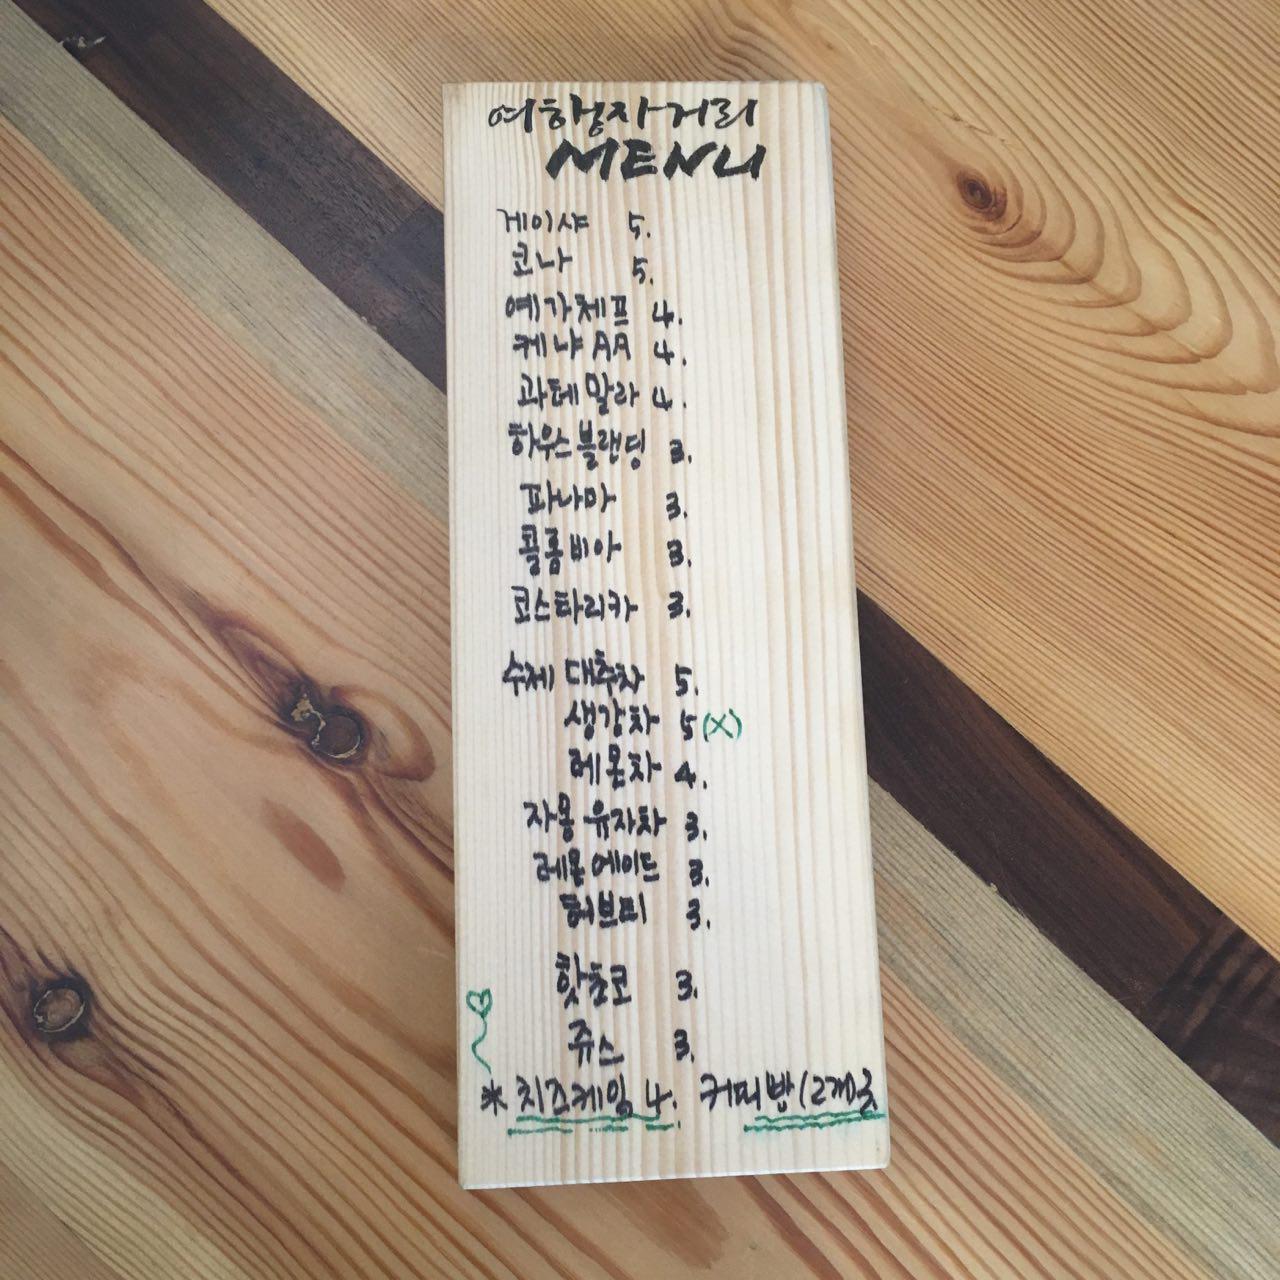 여행자거리
MENU
게이샤 5.
코나 5.
예가체프 4.
케냐 AA 4.
과테말라 4.
하우스블랜딩 3.
파나마 3.
콜롬비아 3.
코스타리카 3.
수제 대추차 5.
생강차 5(X)
레몬차 4.
자몽 유자차 3.
레몬에이드 3.
허브티 3.
핫초코 3.
쥬스 3.
* 치즈케잌 4. 커피빵(2개)